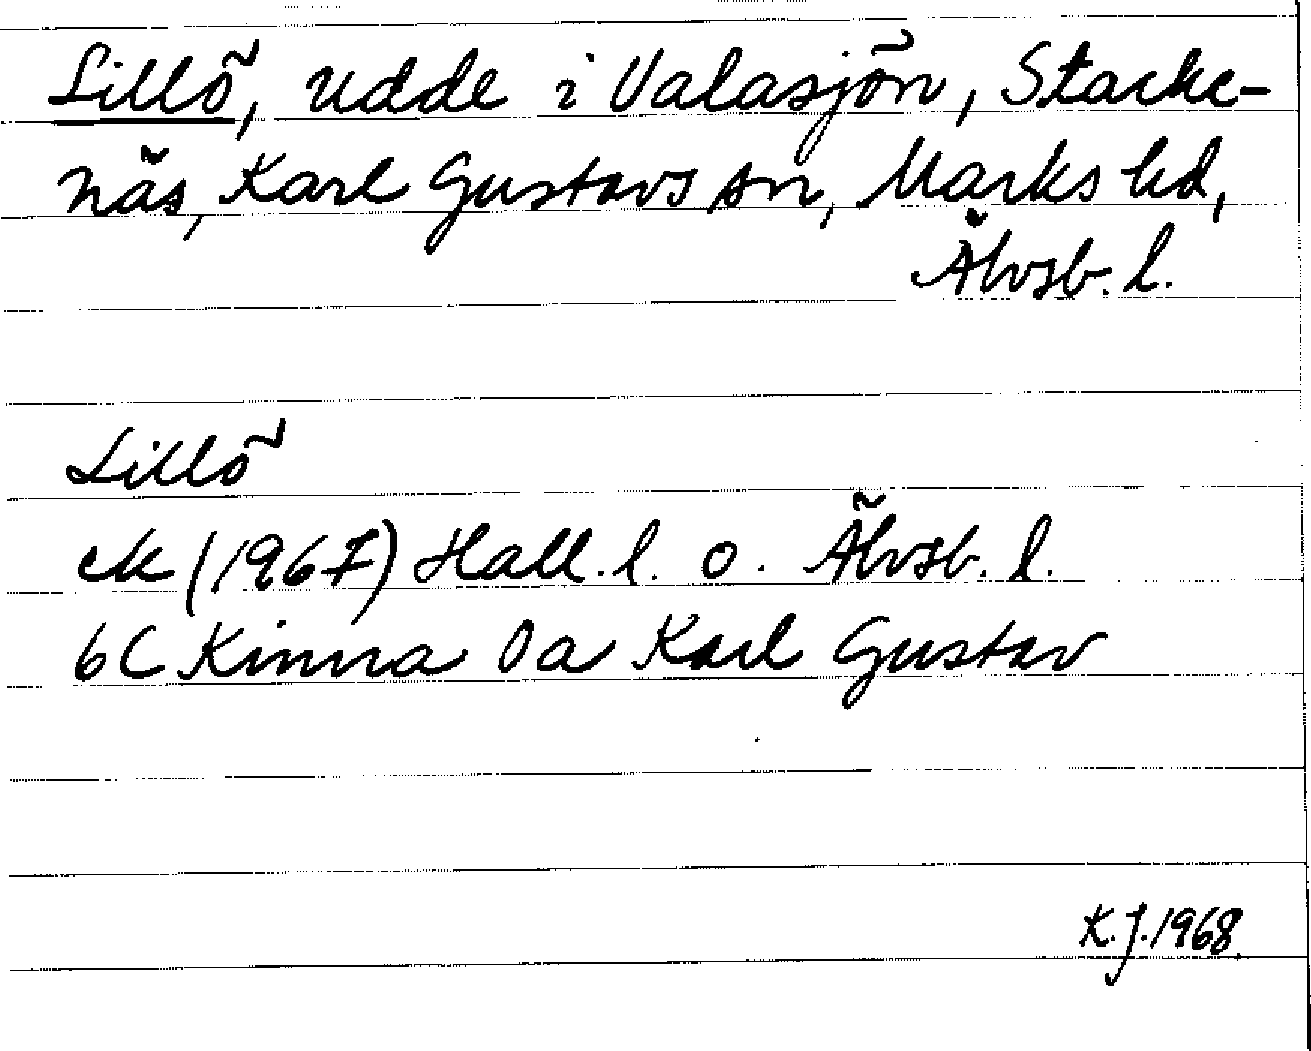 Lillö, udde i Valasjön, Stacke-
näs, Karl Gustavs sn, Marks hd,
Älvsb. l.
Lillö
ek (1967) Hall. l. o. Älvsb. l.
6C Kinna 0a Karl Gustav
K.J. 1968.